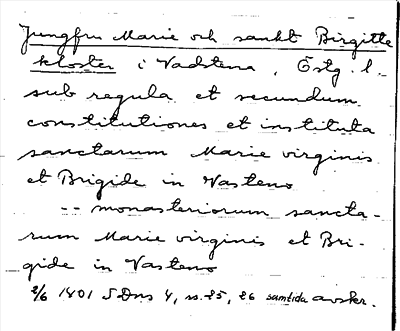 Jungfru Marie och sankt Birgitte
kloster i Vadstena, Östg. l.
sub regula et secundum
constitutiones et instituta
sanctarum Marie virginis
et Brigide in Vasteno
-- monasteriorum sancta-
rum Marie virginis et Bri-
gide in Vasteno
2/6 1401 SDns 1, ss. 25, 26 samtida avskr.